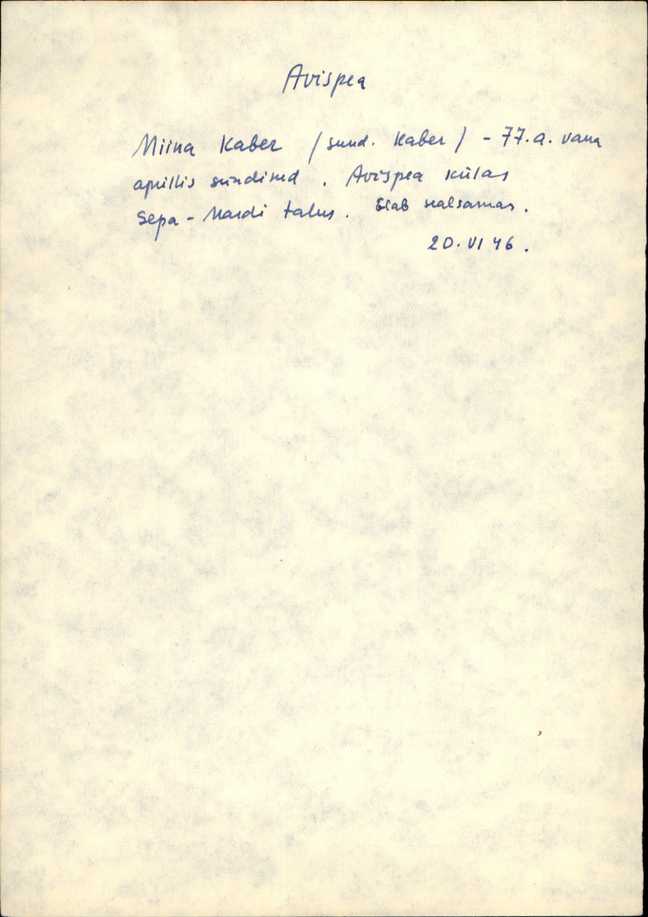 Avispea
Miina Kaber /sünd. Kaber/ - 77.a. vana
aprillis sündinud. Avispea külas
Sepa-Mardi talus. Elab salsamas.
20.VI 46.